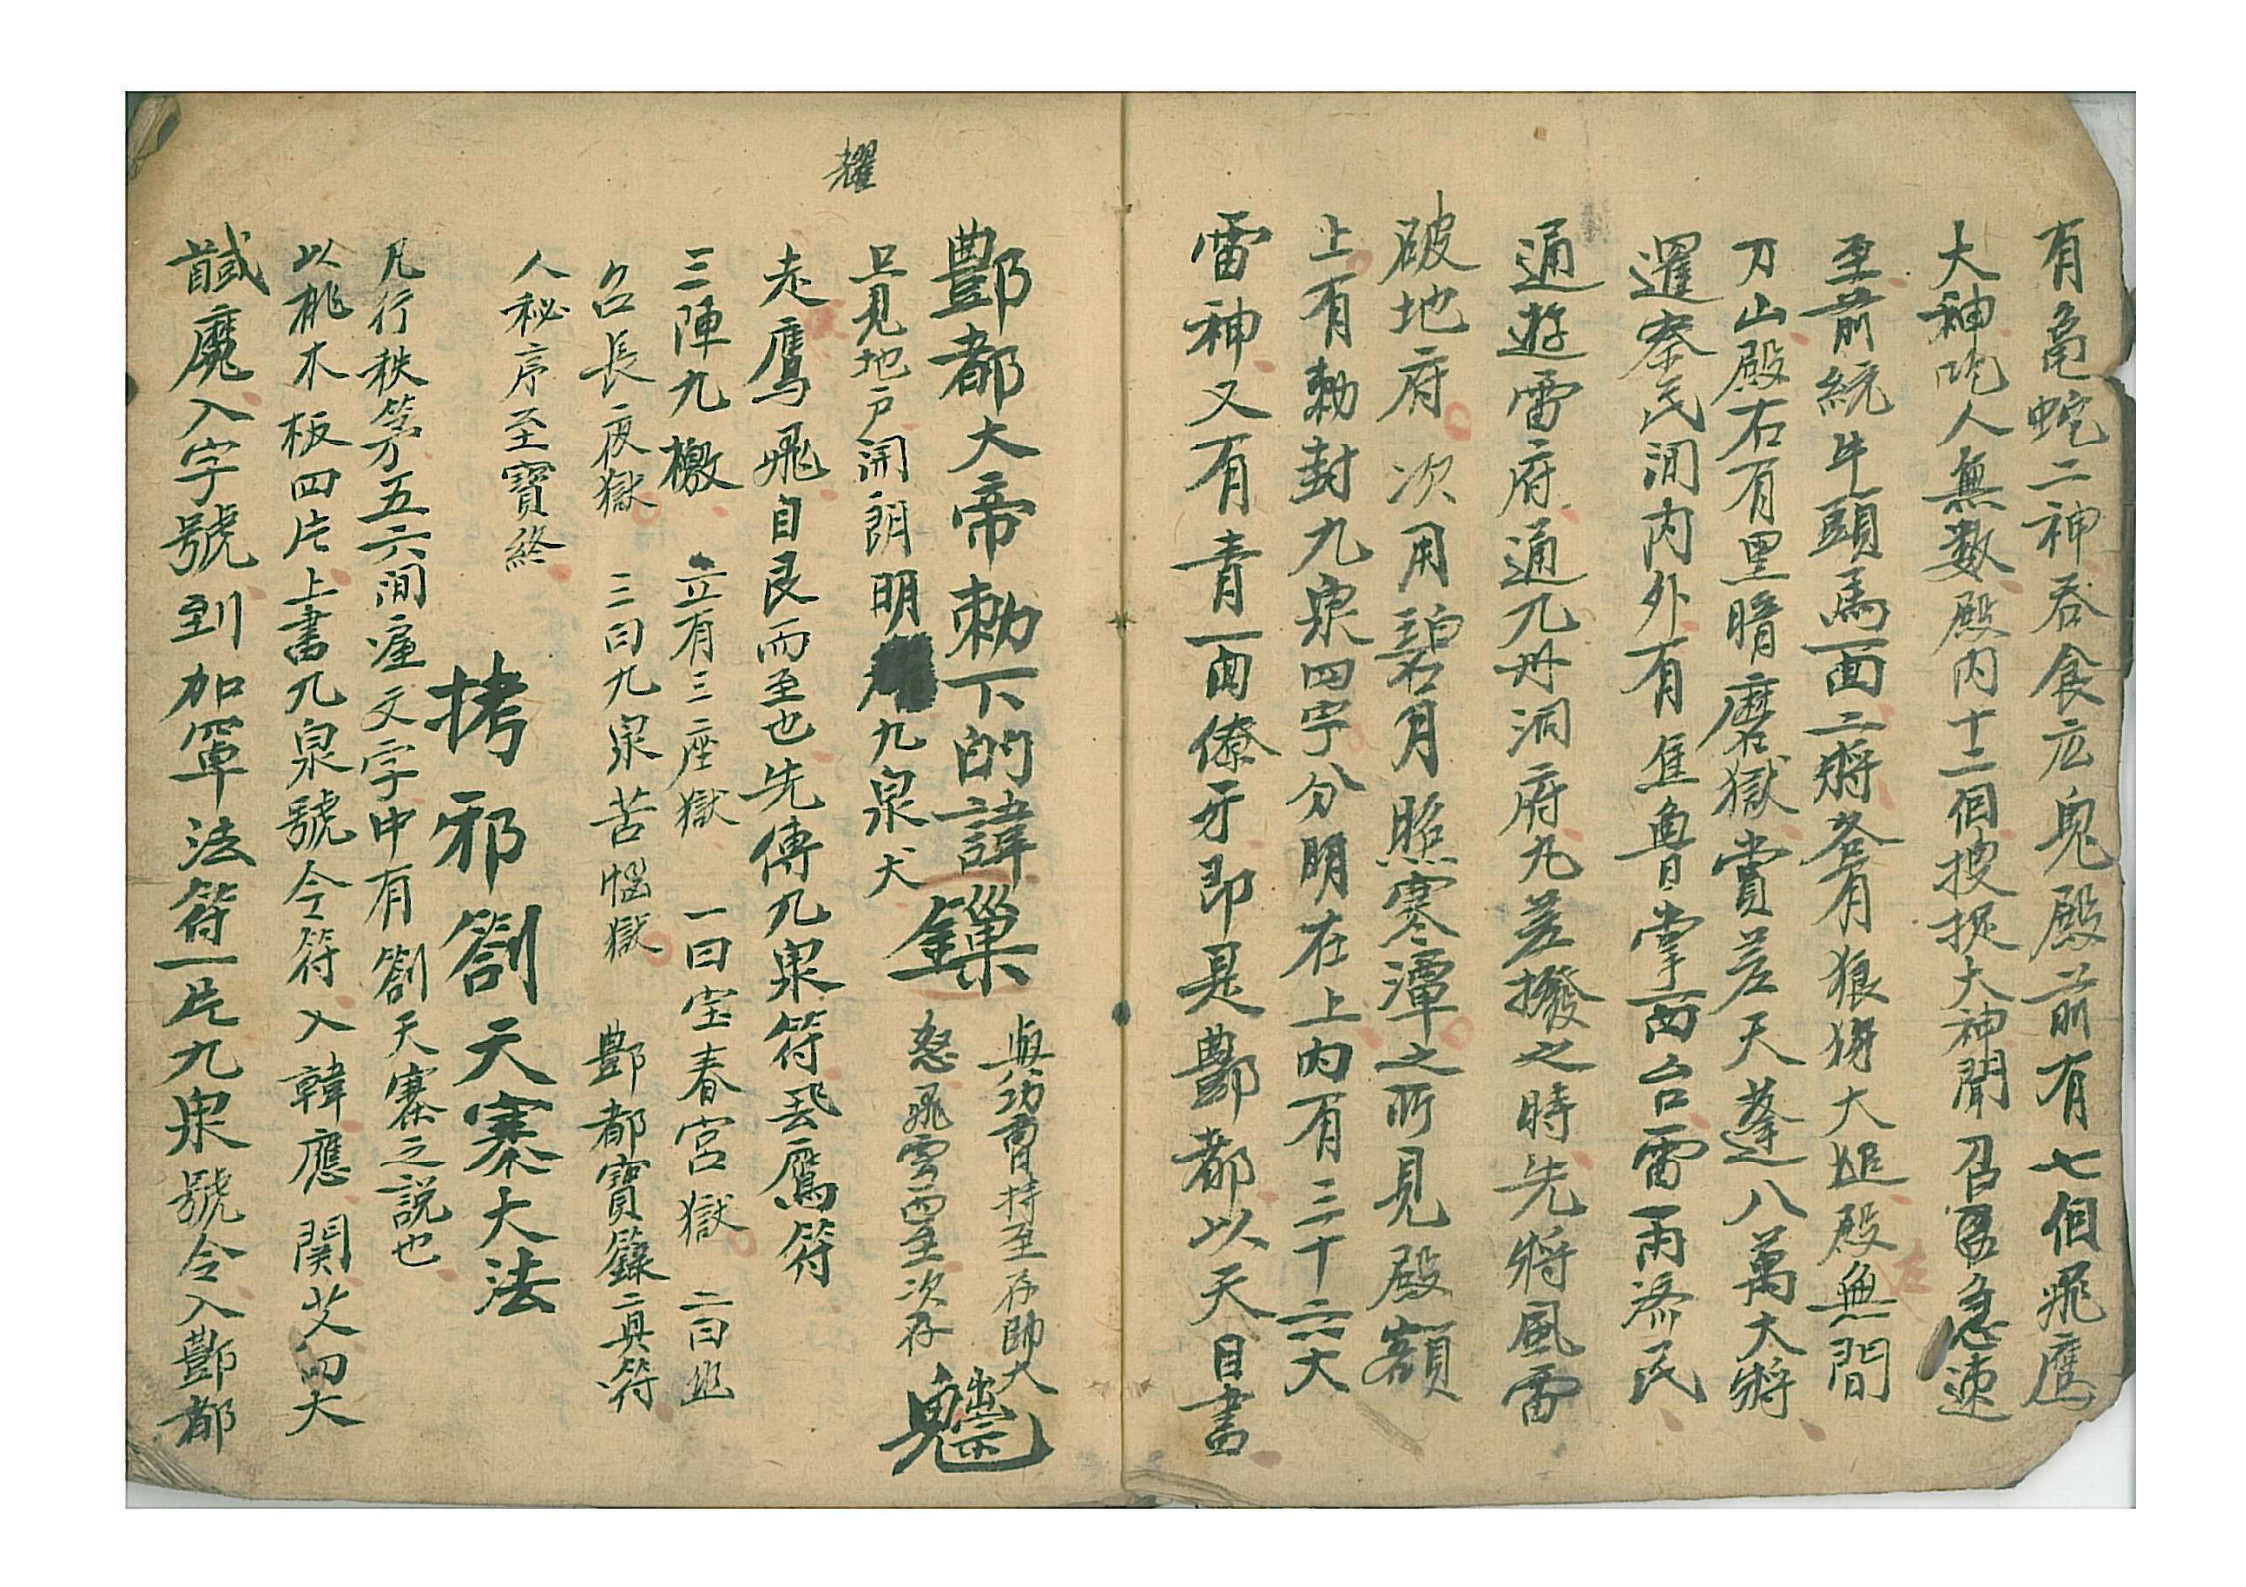 有黿蛇二神吞食広鬼殿前有七個飛鷹
大神吃人無数殿内十二個披捉大神聞召急速
至前統牛頭馬面二將各有狼狗大進殿無間
刀山殿右有黑暗磨獄賞差天蓬八萬大將
邏察民間内外有隹魯掌西台雷雨添民
通遊雷府通九州洞府九差撥之時先將風雷
破地府次用碧月照寒潭之所見殿額
上有勅封九泉四字分明在上内有三十六大
雷神又有青面僚牙即是酆都以天目書
酆都大帝勅下的諱
與功曹持至存帥大
怒飛雲而至次存
旦見地户開朗明九泉犬
耀
走鷹飛自艮而至也先傳九泉符丟鷹符
三陣九檄立有三座獄一曰宝春宮獄二曰
名長夜獄三曰九泉苦惱獄酆都寶籙二真符
人秘序至寶終
拷邪劄天寨大法
凡行秩第五六間瘟文字中有劄天寨之説也
以桃木板四片上書九泉號令符入韓應関艾四大
馘魔入字號到加罩法符一片九泉號令入酆都